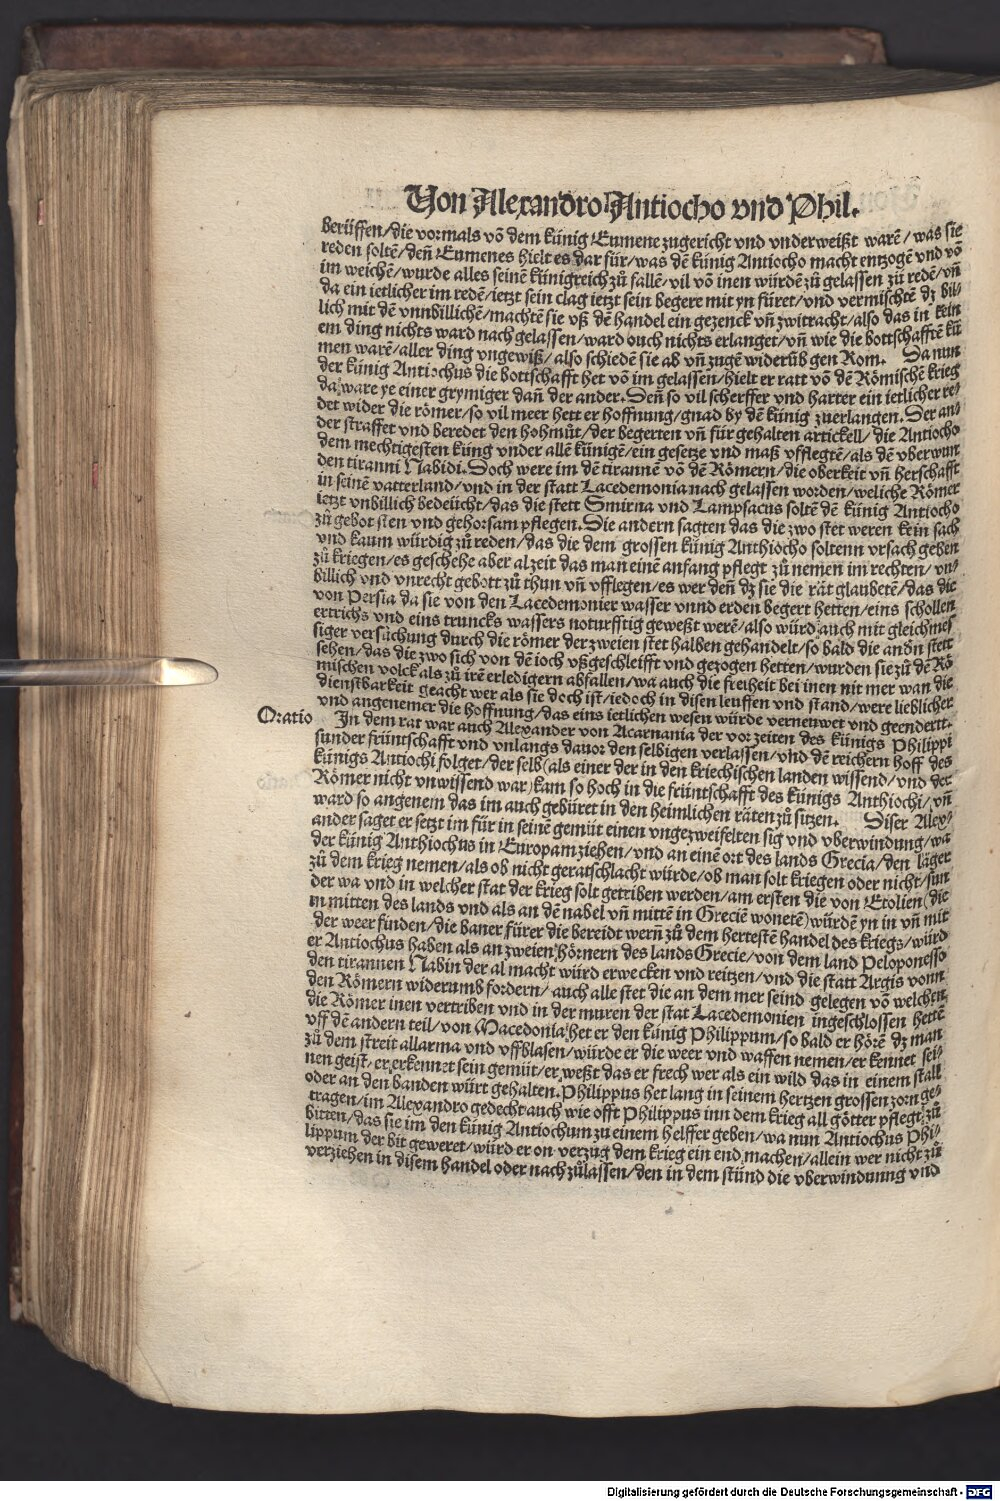 Von Alexandro Antiocho vnd Phil.
berüffen/die vormals võ dem künig Eumene zugericht vnd vnderweißt warẽ/was sie
reden soltẽ/deñ Eumenes hielt es dar für/was dẽ künig Antiocho macht entzogẽ vnd võ
im weichẽ/wurde alles seinẽ künigreich zů fallẽ/vil võ inen würdẽ zů gelassen zů redẽ/vñ
da ein ietlicher im redẽ/ietzt sein clag ietzt sein begere mit yn füret/vnd vermischtẽ dz bil⸗
lich mit dẽ vnnbillichẽ/machtẽ sie vß dẽ handel ein gezenck vñ zwitracht/also das in kein
em ding nichts ward nach gelassen/ward ouch nichts erlanget/vñ wie die bottschafftẽ kũ
men warẽ/aller ding vngewiß/also schiedẽ sie ab vñ zugẽ widerũb gen Rom. Da nun
der künig Antiochus die bottschafft het võ im gelassen/hielt er ratt võ dẽ Römischẽ krieg
da ware ye einer grymiger dañ der ander. Deñ so vil scherffer vnd harter ein ietlicher re⸗
det wider die römer/so vil meer hett er hoffnung/gnad by dẽ künig zuerlangen. Der an⸗
der straffet vnd beredet den hohmůt/der begerten vñ für gehalten artickell/die Antiocho
dem mechtigesten küng vnder allẽ künigẽ/ein gesetze vnd maß vfflegtẽ/als dẽ vberwun
den tiranni Nabidi. Doch were im dẽ tirannẽ võ dẽ Römern/die oberkeit vñ herschafft
in seinẽ vatterland/vnd in der statt Lacedemonia nach gelassen worden/weliche Römer
ietzt vnbillich bedeücht/das die stett Smirna vnd Lampsacus soltẽ dẽ künig Antiocho
zů gebot sten vnd gehorsam pflegen. Die andern sagten das die zwo stet weren kein sach
vnd kaum würdig zů reden/das die dem grossen künig Anthiocho soltenn vrsach geben
zů kriegen/es geschehe aber alzeit das man einẽ anfang pflegt zů nemen im rechten/vn⸗
billich vnd vnrecht gebott zů thun vñ vfflegen/es wer deñ dz sie die rät glaubetẽ/das die
von Persia da sie von den Lacedemonier wasser vnnd erden begert hetten/eins schollen
ertrichs vnd eins truncks wassers noturfftig geweßt werẽ/also würd auch mit gleichmes
siger versůchung durch die römer der zweien stet halben gehandelt/so bald die andñ stett
sehen/das die zwo sich von dẽ ioch vßgeschleifft vnd gezogen hetten/wurden sie zů dẽ Rö
mischen volck als zů irẽ erledigern abfallen/wa auch die freiheit bei inen nit mer wan die
dienstbarkeit geacht wer als sie doch ist/iedoch in disen leuffen vnd stand/were lieblicher
vnd angenemer die hoffnung/das eins ietlichen wesen würde vernewet vnd geendertt.
Oratio
In dem rat war auch Alexander von Acarnania der vor zeiten des künigs Philippi
sunder früntschafft vnd vnlangs dauor den selbigen verlassen/vnd dẽ reichern hoff des
künigs Antiochi folget/der selb(als einer der in den kriechischen landen wissend/vnd der
Römer nicht vnwissend war)kam so hoch in die früntschafft des künigs Anthiochi/vñ
ward so angenem das im auch gebüret in den heimlichen räten zů sitzen. Diser Alex⸗
ander saget er setzt im für in seinẽ gemüt einen vngezweifelten sig vnd vberwindung/wa
der künig Anthiochus in Europam ziehen/vnd an einẽ ort des lands Grecia/den läger
zů dem krieg nemen/als ob nicht geratschlacht würde/ob man solt kriegen oder nicht/sun
der wa vnd in welcher stat der krieg solt getriben werden/am ersten die von Etolien(die
in mitten des lands vnd als an dẽ nabel vñ mittẽ in Greciẽ wonetẽ)würdẽ yn in vñ mit
der weer finden/die baner fürer die bereidt wern zů dem hertestẽ handel des kriegs/würd
er Antiochus haben als an zweien hörnern des lands Grecie/von dem land Peloponesso
den tirannen Nabin der al macht würd erwecken vnd reitzen/vnd die statt Argis vonn
den Römern widerumb fordern/auch alle stet die an dem mer seind gelegen võ welchen
die Römer inen vertriben vnd in der muren der stat Lacedemonien ingeschlossen hettẽ
vff dẽ andern teil/von Macedonia het er den künig Philippum/so bald er hörẽ dz man
zů dem streit allarma vnd vffblasen/würde er die weer vnd waffen nemen/er kennet sei⸗
nen geist/er erkennet sein gemüt/er weßt das er frech wer als ein wild das in einem stall
oder an den banden würt gehalten. Philippus het lang in seinem hertzen grossen zorn ge⸗
tragen/im Alexandro gedecht auch wie offt Philippus inn dem krieg all götter pflegt zů
bitten/das sie im den künig Antiochum zu einem helffer geben/wa nun Antiochus Phi⸗
lippum der bit geweret/würd er on verzug dem krieg ein end machen/allein wer nicht zů
verziehen in disem handel oder nach zůlassen/den in dem stünd die vberwindunng vnd
Digitalisierung gefördert durch die Deutsche Forschungsgemeinschaft - DFG